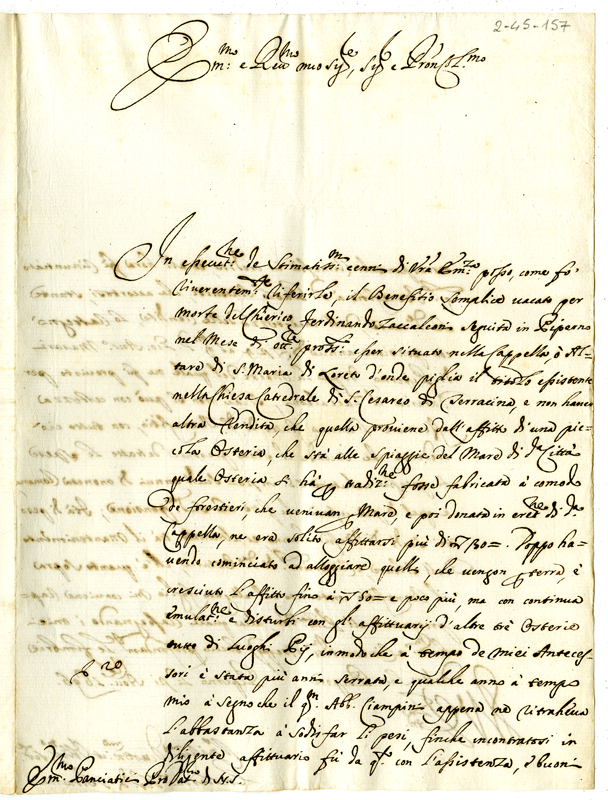 2-45-157
Em.mo e Re.mo mio Sig.re, Sig.re e Pron Col.mo
In esecut.ne de Stimatiss.mi cenni di Vra Em.za posso, come fo'
riverentem.te riferirle, il Benefitio Semplice vacato per
morte del Chierico Ferdinando Zaccaleoni seguita in Piperno
nel Mese di ott.re pross.o esser situato nella Cappella ò Al-
tare di S. Maria di Loreto d'onde piglia il titolo esistente
nella Chiesa Catedrale di S. Cesareo di Terracina, e non haver
altra rendita, che quella proviene dall'affitto di una pic-
cola Osteria, che stà alle Spiaggie del Mare di d.a Città
quale Osteria si hà p tradiz.ne fosse fabricata à comodo
de forestieri, che venivan p Mare, e poi donata in erett.ne di d.a
Cappella, ne era solito affittarsi più di 30= Doppo ha-
vendo cominciato ad alloggiare quelli, che vengon p terra, è
cresciuto l'affitto fino à 50= e poco più, ma con continua
emulat.ne e disturbi con gl'affittuarij d'altre trè Osterie
tutte di Luoghi Pij, in modo che à tempo de miei Anteces-
sori è stata più anni Serrata, e qualche anno à tempo
mio à segno che il q.m Abb. Ciampini appena ne ritraheva
l'abbastanza à sodisfar li pesi, finche incontratosi in
diligente affittuario fù da q.o con l'assistenza, e buon
Em.mo Panciatici Pro Dat.rio di N.S.